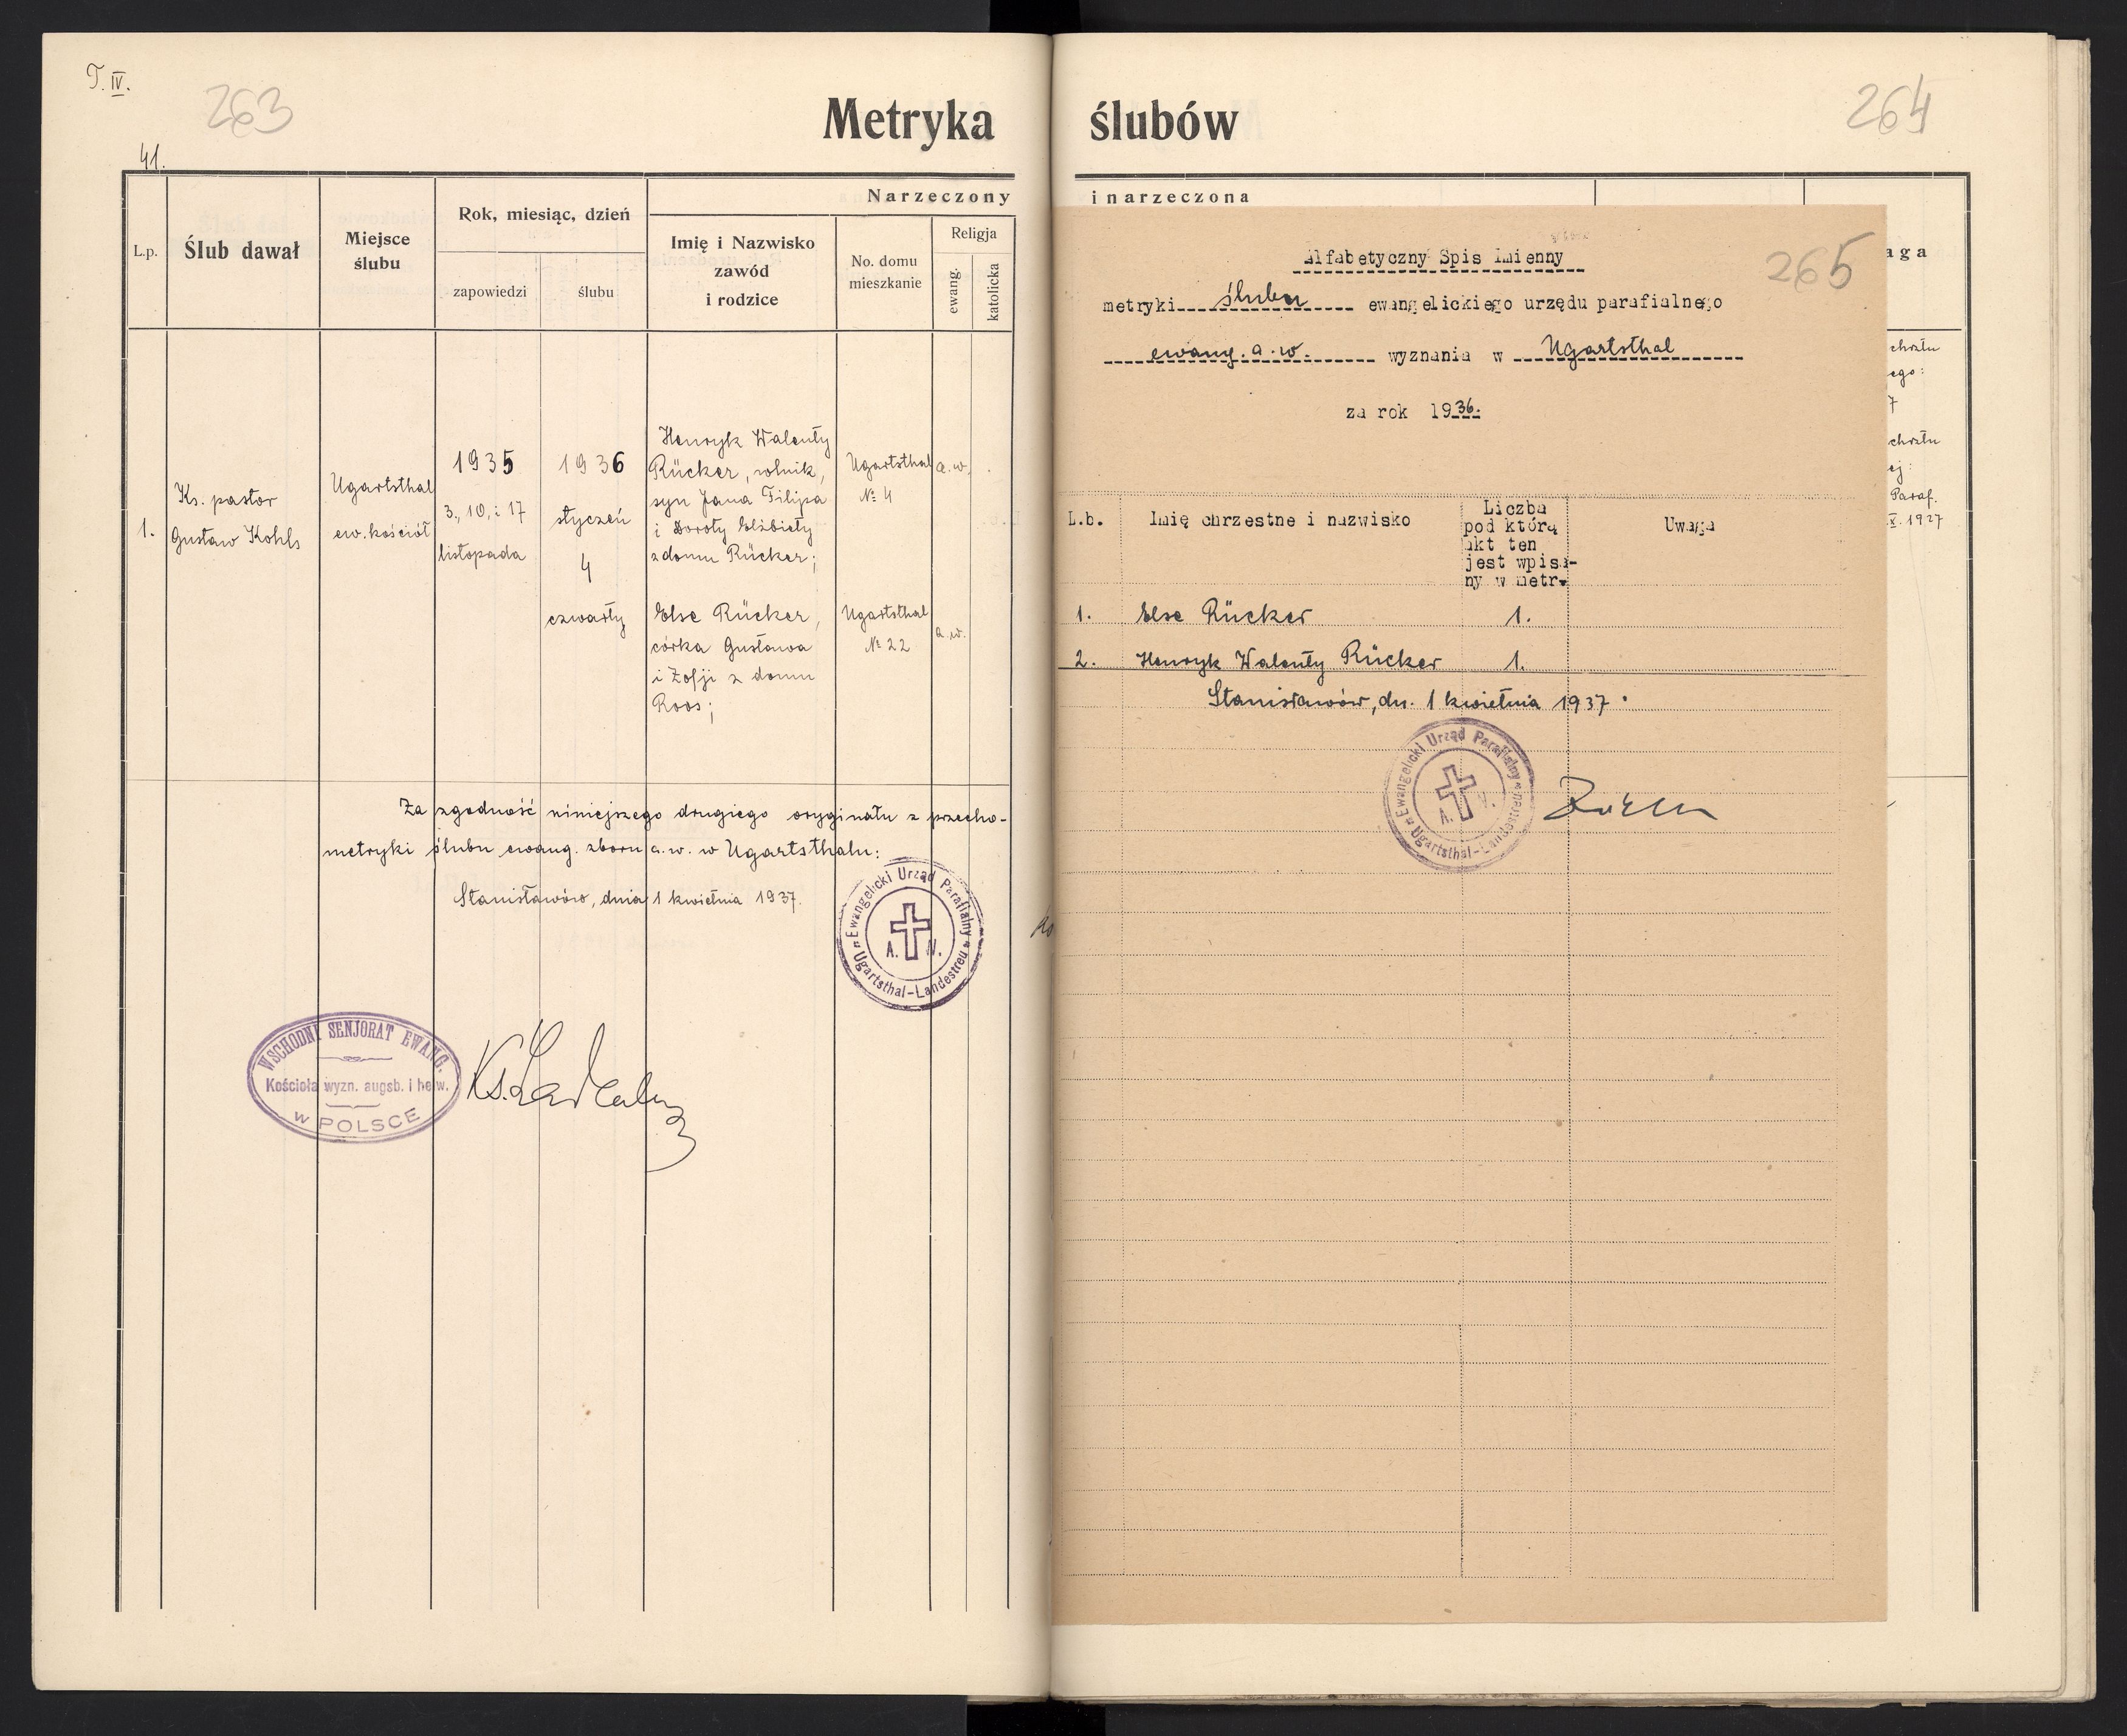 T. IV.
263
41.
Metryka
L.p.
Ślub dawał
Miejsce
ślubu
Rok, miesiąc, dzień
zapowiedzi
ślubu
Narzeczony
Imię i Nazwisko
zawód
i rodzice
No. domu
mieszkanie
Religja
ewang.
katolicka
1.
Ks. pastor
Gustaw Kohls
Ugartsthal
ew. kościół
1935
3., 10, i 17
listopada
1936
styczeń
4
czwarty
Henryk Walenty
Rücker, rolnik,
syn Jana Filipa
i Doroty Elżbiety
z domu Rücker;
Ugartsthal
№ 4
a.w.
Else Rücker,
córka Gustawa
i Zofji z domu
Roos;
Ugartsthal
№ 22
a.w.
Za zgodność niniejszego drugiego oryginału z przecho-
metryki ślubu ewang. zboru a.w. w Ugartsthalu:
Stanisławów, dnia 1 kwietnia 1937.
Ewangelicki Urząd Parafialny
A. W.
Ugartsthal-Landestreu
WSCHODNI SENJORAT EWANG.
Kościoła wyzn. augsb. i helw.
w POLSCE
ślubów
264
i narzeczona
aga
chrztu
ego:
7
chrztu
ej:
Paraf.
X. 1927
265
Alfabetyczny Spis Imienny
metryki ślubu ewangelickiego urzędu parafialnego
ewang. a.w. wyznania w Ugartsthal
za rok 1936.
L.b.
Imię chrzestne i nazwisko
Liczba
pod którą
akt ten
jest wpisa-
ny w metr.
Uwaga
1. Else Rücker 1.
2. Henryk Walenty Rücker 1.
Stanisławów, dn. 1 kwietnia 1937.
Ewangelicki Urząd Parafialny
A. W.
Ugartsthal-Landestreu